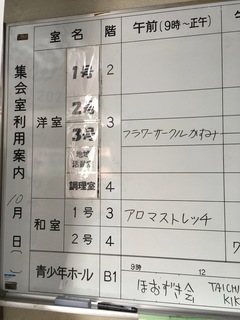 室名 階 午前(9時〜正午)
集会室利用案内
10月 日( )
洋室
1号 2
2号
3号 3 フラワーサークルかすみ
地域
活動室
調理室 4
和室
1号 3 アロマストレッチ
2号 4
青少年ホール B1
9時 12
ほおずき会 TAICHI
KIK